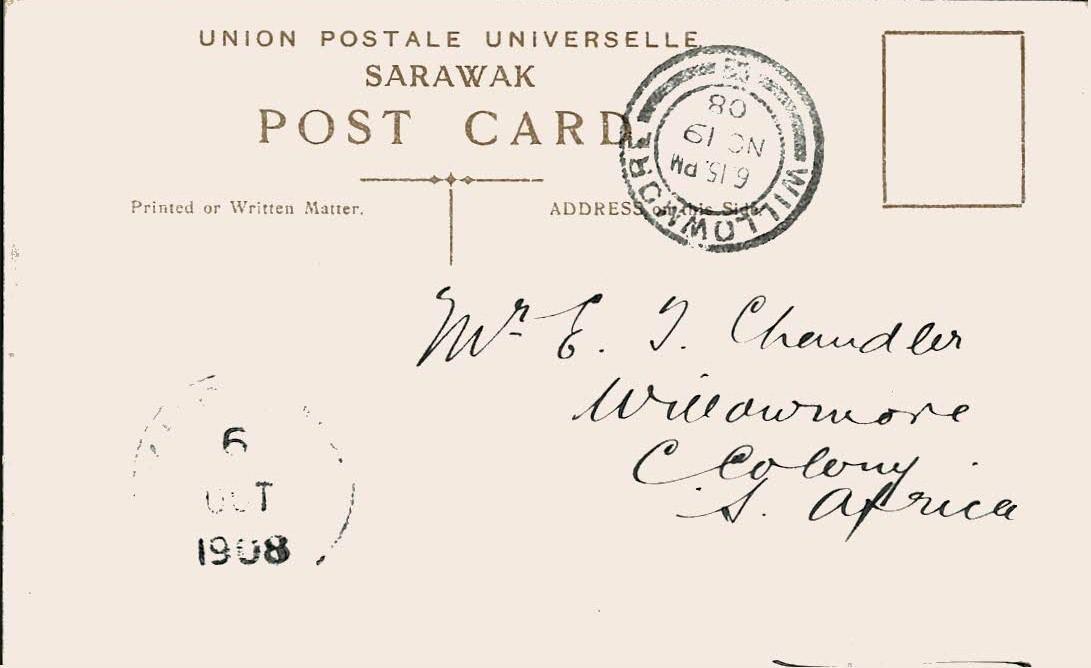 UNION POSTALE UNIVERSELLE
SARAWAK
POST CARD
Printed or Written Matter.
ADDRESS on this Side.
WILLOWMORE
6.15. PM
NO 19
08
Mr E. J. Chandler
Willowmore
C Colony
S. Africa
6
OCT
1908